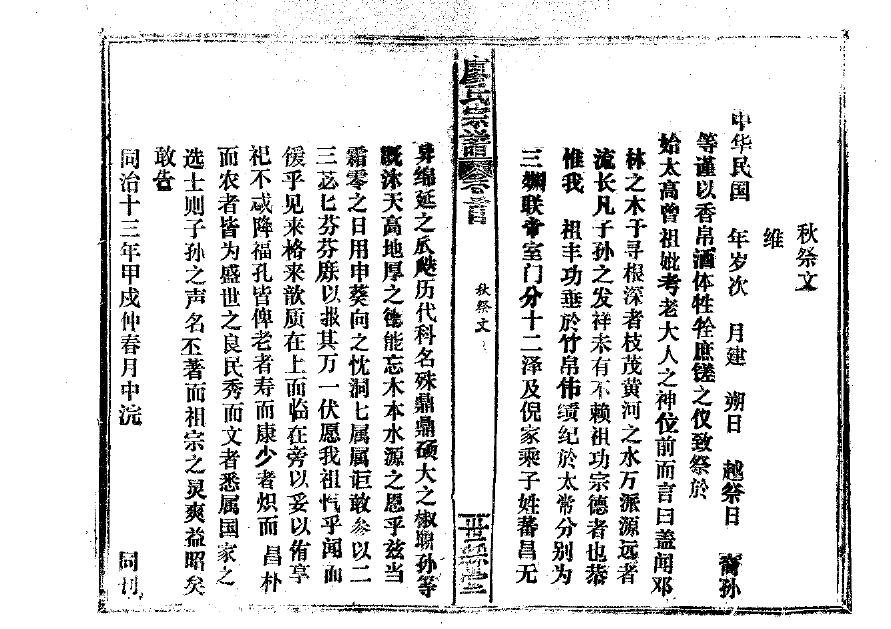 秋祭文
维
中华民国 年岁次 月建 朔日 越祭日 裔孙
等谨以香帛酒体牲牷庶馐之仪致祭於
始太高曾祖妣考老大人之神位前而言曰盖闻邓
林之木于寻根深者枝茂黄河之水万派源远者
流长凡子孙之发祥未有不赖祖功宗德者也恭
惟我 祖丰功垂於竹帛伟绩纪於太常分别为
三 联帝室门分十二泽及倪家乘子姓蕃昌无
廖氏宗谱 卷首
秋祭文
异绵延之瓜瓞历代科名殊鼎鼎硕大之椒聊孙等
既沐天高地厚之德能忘木本水源之恩乎兹当
霜零之日用申葵向之忱洞七属属讵敢参以二
三苾匕芬芬庶以报其万一伏愿我祖忾乎闻而
僾乎见来格来歆质在上而临在旁以妥以侑享
祀不忒降福孔皆俾老者寿而康少者炽而昌朴
而农者皆为盛世之良民秀而文者悉属国家之
选士则子孙之声名丕著而祖宗之灵爽益昭矣
敢告
同治十三年甲戌仲春月中浣 同刊